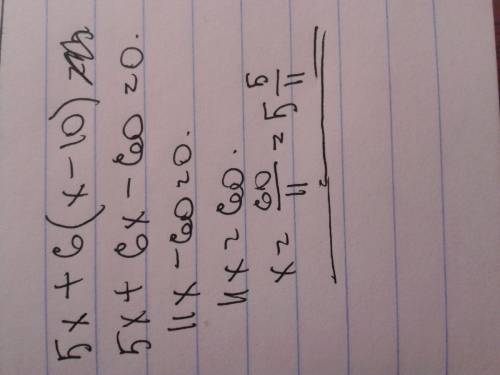 5x + 6(x - 10)
5x + 6x - 60 = 0.
11x - 60 = 0.
11x = 60.
x = 60/11 = 5 5/11